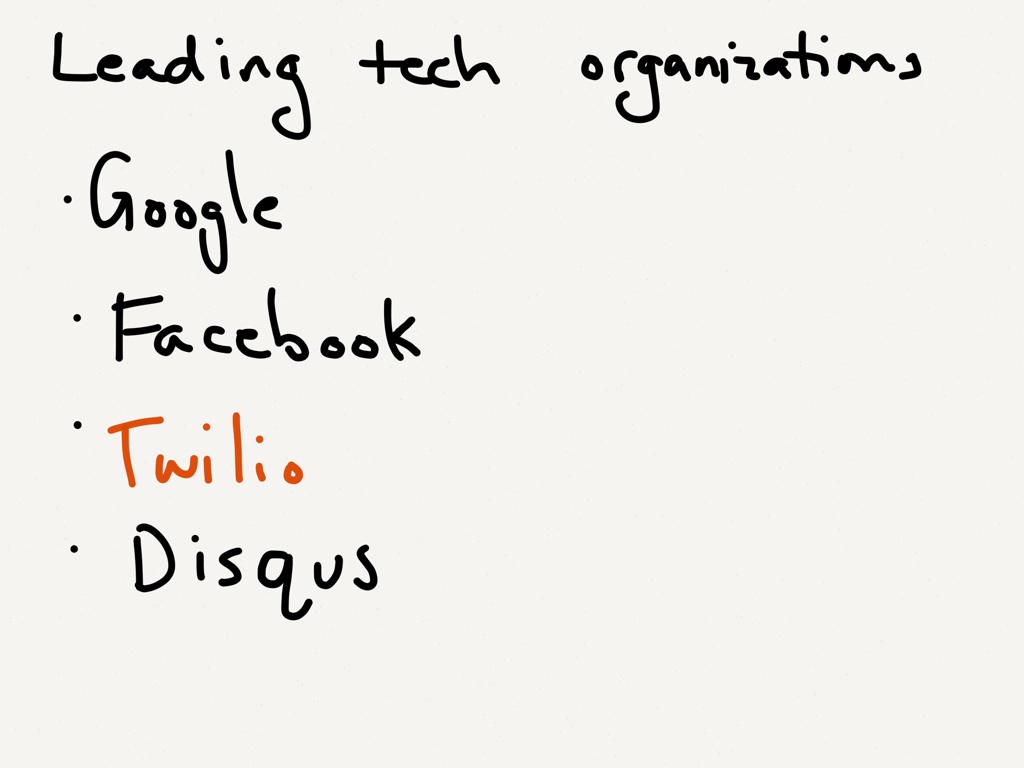 Leading tech organizations
· Google
· Facebook
· Twilio
· Disqus